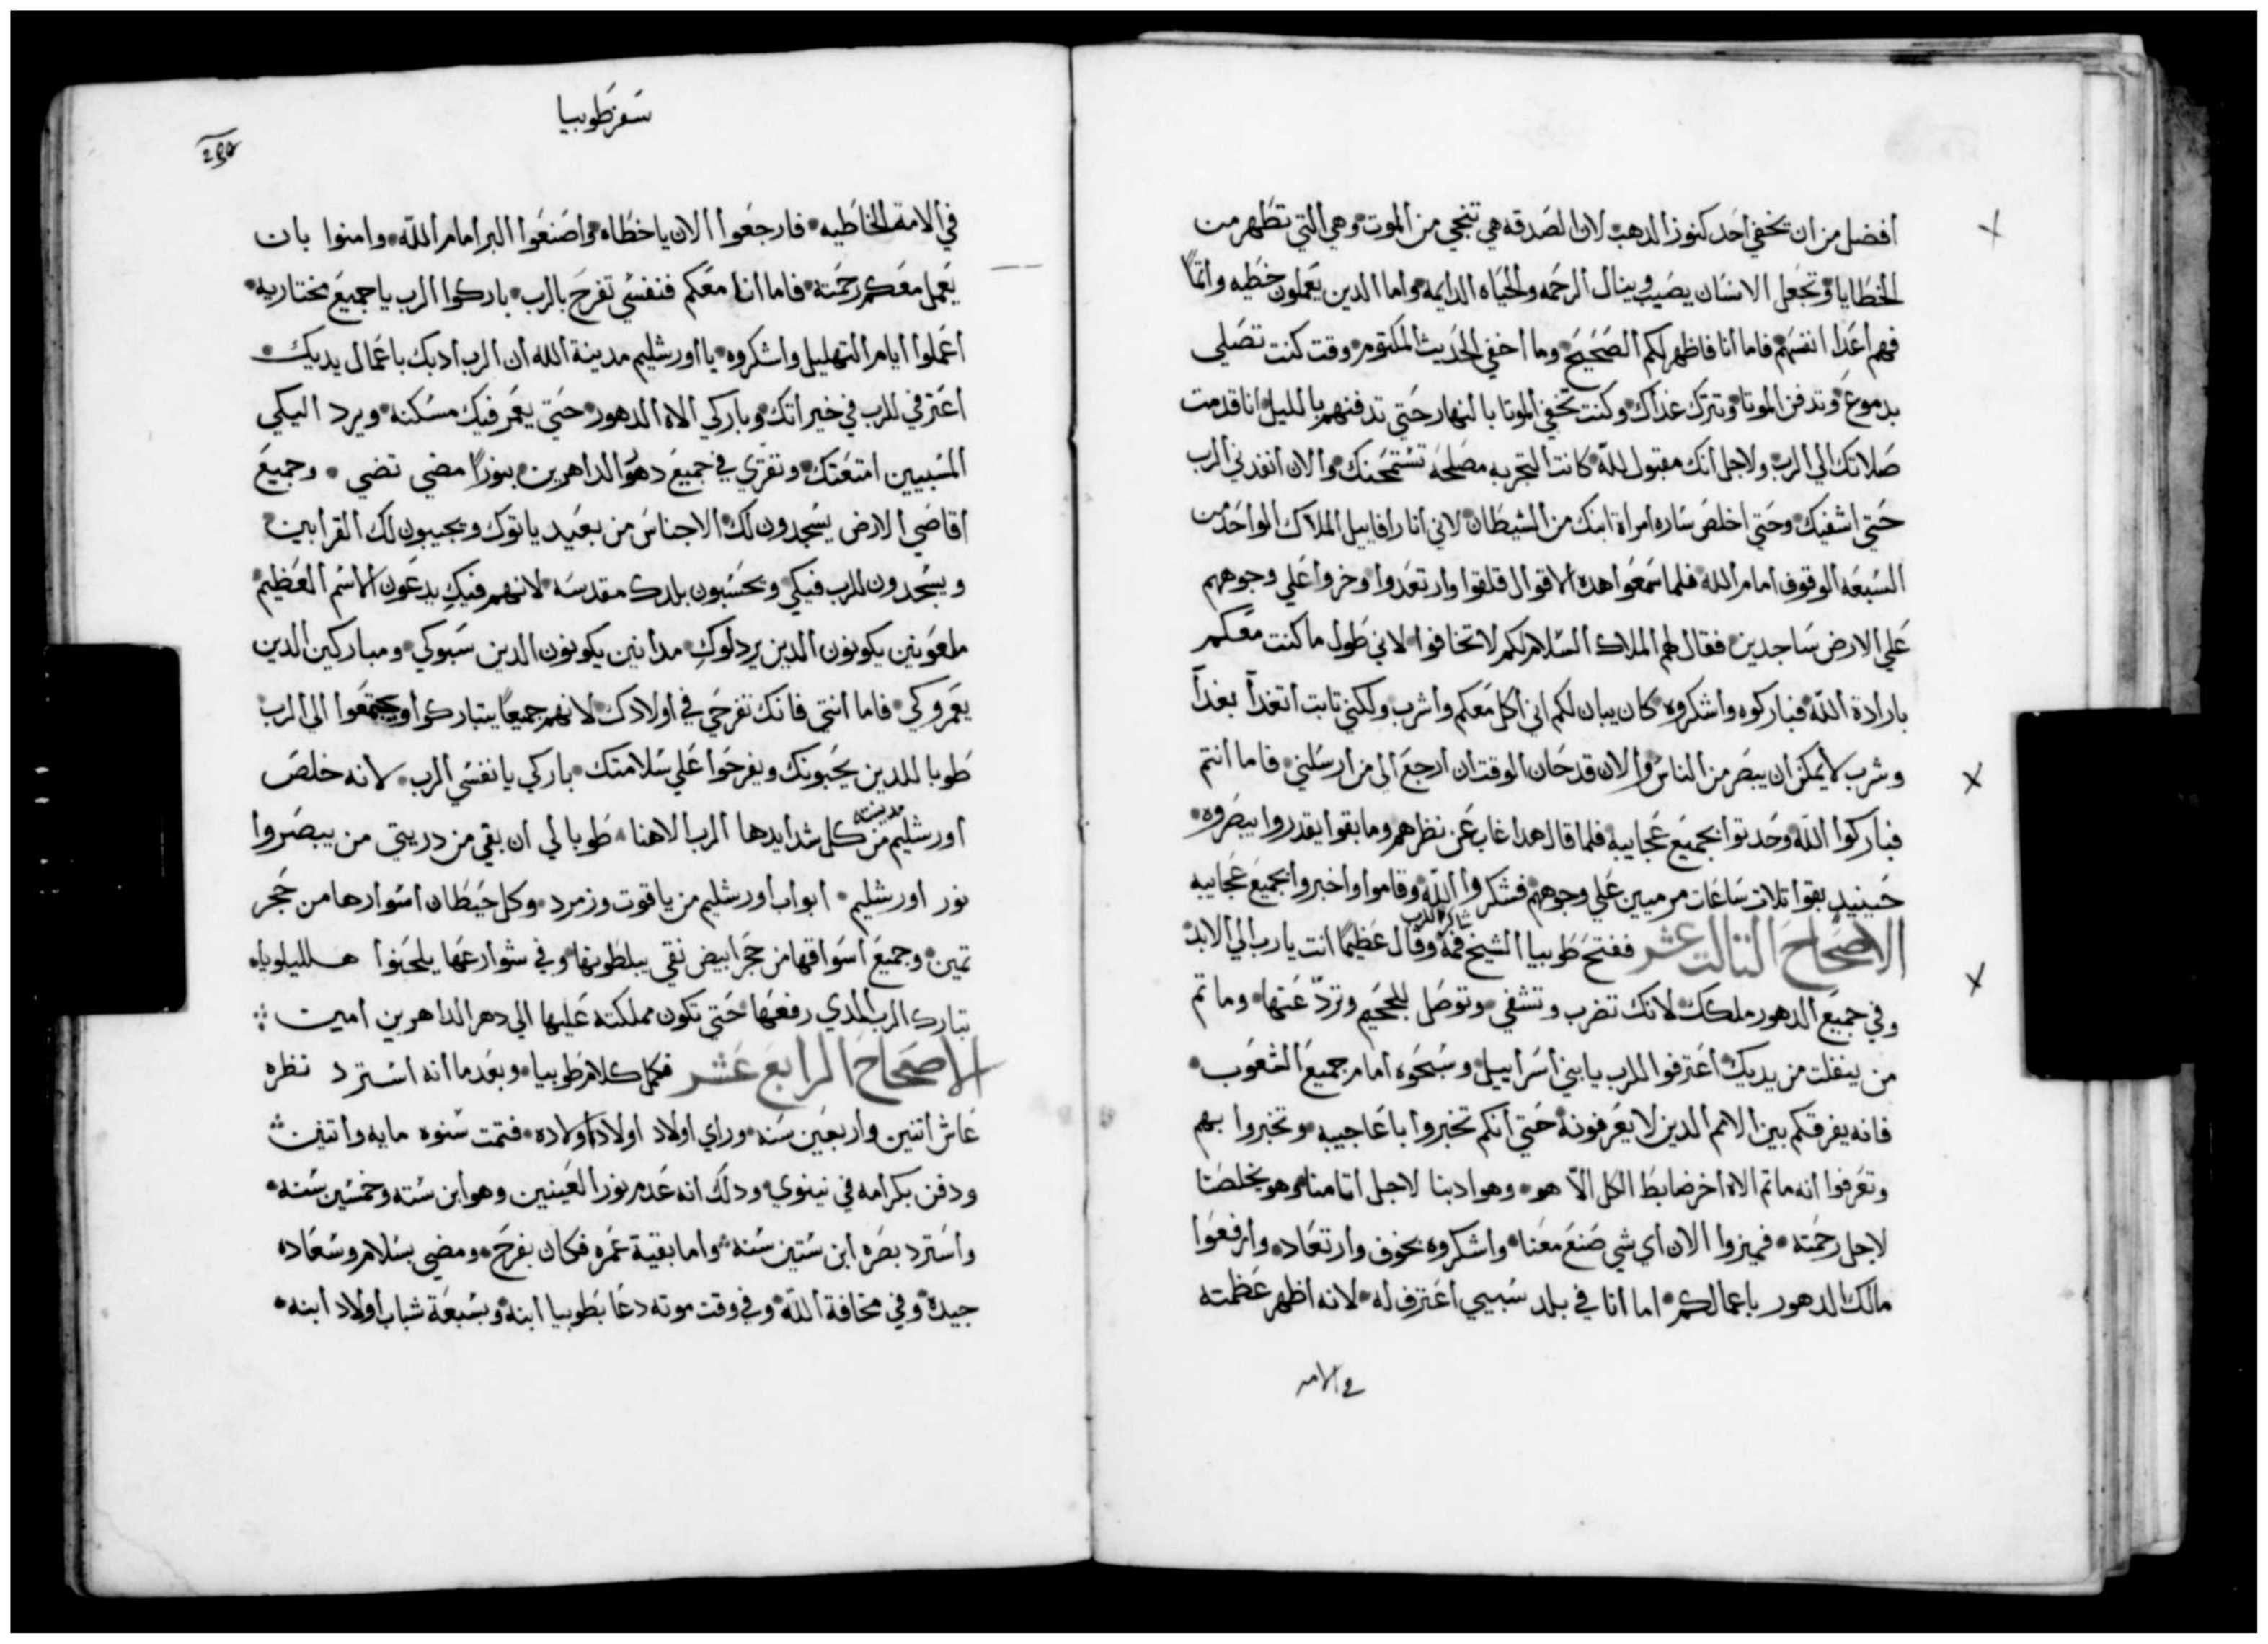 افضل من ان يخفي احد كنوز الدهب لان الصدقه هي تنجي من الموت وهي التي تطهر من
الخطايا وتجعل الانسان يصيب وينال الرحمه والحياه الدايمه واما الدين يعملون خطيه واثمًا
فهم اعدا انفسهم فاما انا فاظهر لكم الصحيح وما اخفي الحديث المكتوم وقت كنت تصلي
بدموع وتدفن الموتا وتترك غداك وكنت تخفي الموتا بالنهار حتي تدفنهم بالليل انا قدمت
صلاتك الي الرب ولاجل انك مقبول لله كانت التجربه مصلحه تستمحنك والان انفدني الرب
حتي اشفيك وحتي اخلص ساره امراة ابنك من الشيطان لاني انا رافاييل الملاك الواحد من
السبعه الوقوف امام الله فلما سمعوا هده الاقوال قلقوا وارتعدوا وخروا علي وجوههم
علي الارض ساجدين فقال لهم الملاك السلام لكم لا تخافوا لاني طول ما كنت معكم
بارادة الله فباركوه واشكروه كان يبان لكم اني اكل معكم واشرب ولكني تابت اتغدا بغدآ
وشرب لا يمكن ان يبصر من الناس والان قد حان الوقت ان ارجع الي من ارسلني فاما انتم
فباركوا الله وحدتوا بجميع عجايبه فلما قال هدا غاب عن نظرهم وما بقوا يقدروا يبصروه
حينيد بقوا تلات ساعات مرميين علي وجوههم فشكروا الله وقاموا واخبروا بجميع عجايبه
الاصحاح التالت عشر ففتح طوبيا الشيخ فمه شاكر الرب وقال عظيمًا انت يا رب الي الابد
وفي جميع الدهور ملكك لانك تضرب وتشفي وتوصل للجحيم وتردّ عنها وما تم
من ينفلت من يديك اعترفوا للرب يا بني اسراييل وسبحوه امام جميع الشعوب
فانه يفرقكم بين الامم الدين لا يعرفونه حتي انكم تخبروا باعاجيبه وتخبروا بهم
وتعرفوا انه ما تم الاه اخر ضابط الكل الّا هو وهو ادبنا لاجل اتامنا وهو يخلصنا
لاجل رحمته فميزوا الان اي شي صنع معنا واشكروه بخوف وارتعاد وارفعوا
مالك الدهور باعمالكم اما انا في بلد سبيي اعترف له لانه اظهر عظمته
في الامه
سفر طوبيا
في الامة الخاطيه فارجعوا الان يا خطاه واصنعوا البر امام الله وامنوا بان
يعمل معكم رحمته فاما انا معكم فنفسي تفرح بالرب باركوا الرب يا جميع مختاريه
اعملوا ايام التهليل واشكروه يا اورشليم مدينة الله ان الرب ادبك باعمال يديك
اعترفي للرب في خيراتك وباركي الاه الدهور حتي يعمر فيك مسكنه ويرد اليكي
المسبيين امتعتك وتفتري في جميع دهو الداهرين بنورًا مضي تضي وجميع
اقاصي الارض يسجدون لك الاجناس من بعيد ياتوك ويجيبون لك القرابين
ويسجدون للرب فيكي ويحسبون بلدك مقدسه لانهم فيكِ يدعون الاسم العظيم
ملعونين يكونون الدين يردلوكِ مدانين يكونون الدين سبوكي ومباركين الدين
يعمروكي فاما انتي فانك تفرحي في اولادك لانهم جميعًا يتباركوا ويجتمعوا الي الرب
طوبا للدين يحبونك ويفرحوا علي سلامتك باركي يا نفسي الرب لانه خلص
اورشليم مدينته من كل شدايدها الرب الاهنا طوبا لي ان بقي من دريتي من يبصروا
نور اورشليم ابواب اورشليم من ياقوت وزمرد وكل حيطان اسوارها من حجر
تمين وجميع اسواقها من حجر ابيض نقي يبلطونها وفي شوارعها يلحنوا هلليلوياه
تبارك الرب الدي رفعها حتي تكون مملكته عليها الي دهر الداهرين امين
الاصحاح الرابع عشر فكمل كلام طوبيا وبعد ما انه استرد نظره
عاش اتنين واربعين سنه وراي اولاد اولاد اولاده فتمت سنوه مايه واتنين
ودفن بكرامه في نينوي ودلك انه عدم نور العينين وهو ابن سته وخمسين سنه
واسترد بصره ابن ستين سنه واما بقية عمره فكان بفرح ومضي بسلام وسعاده
جيده وفي مخافة الله وفي وقت موته دعا بطوبيا ابنه وبسبعة شباب اولاد ابنه